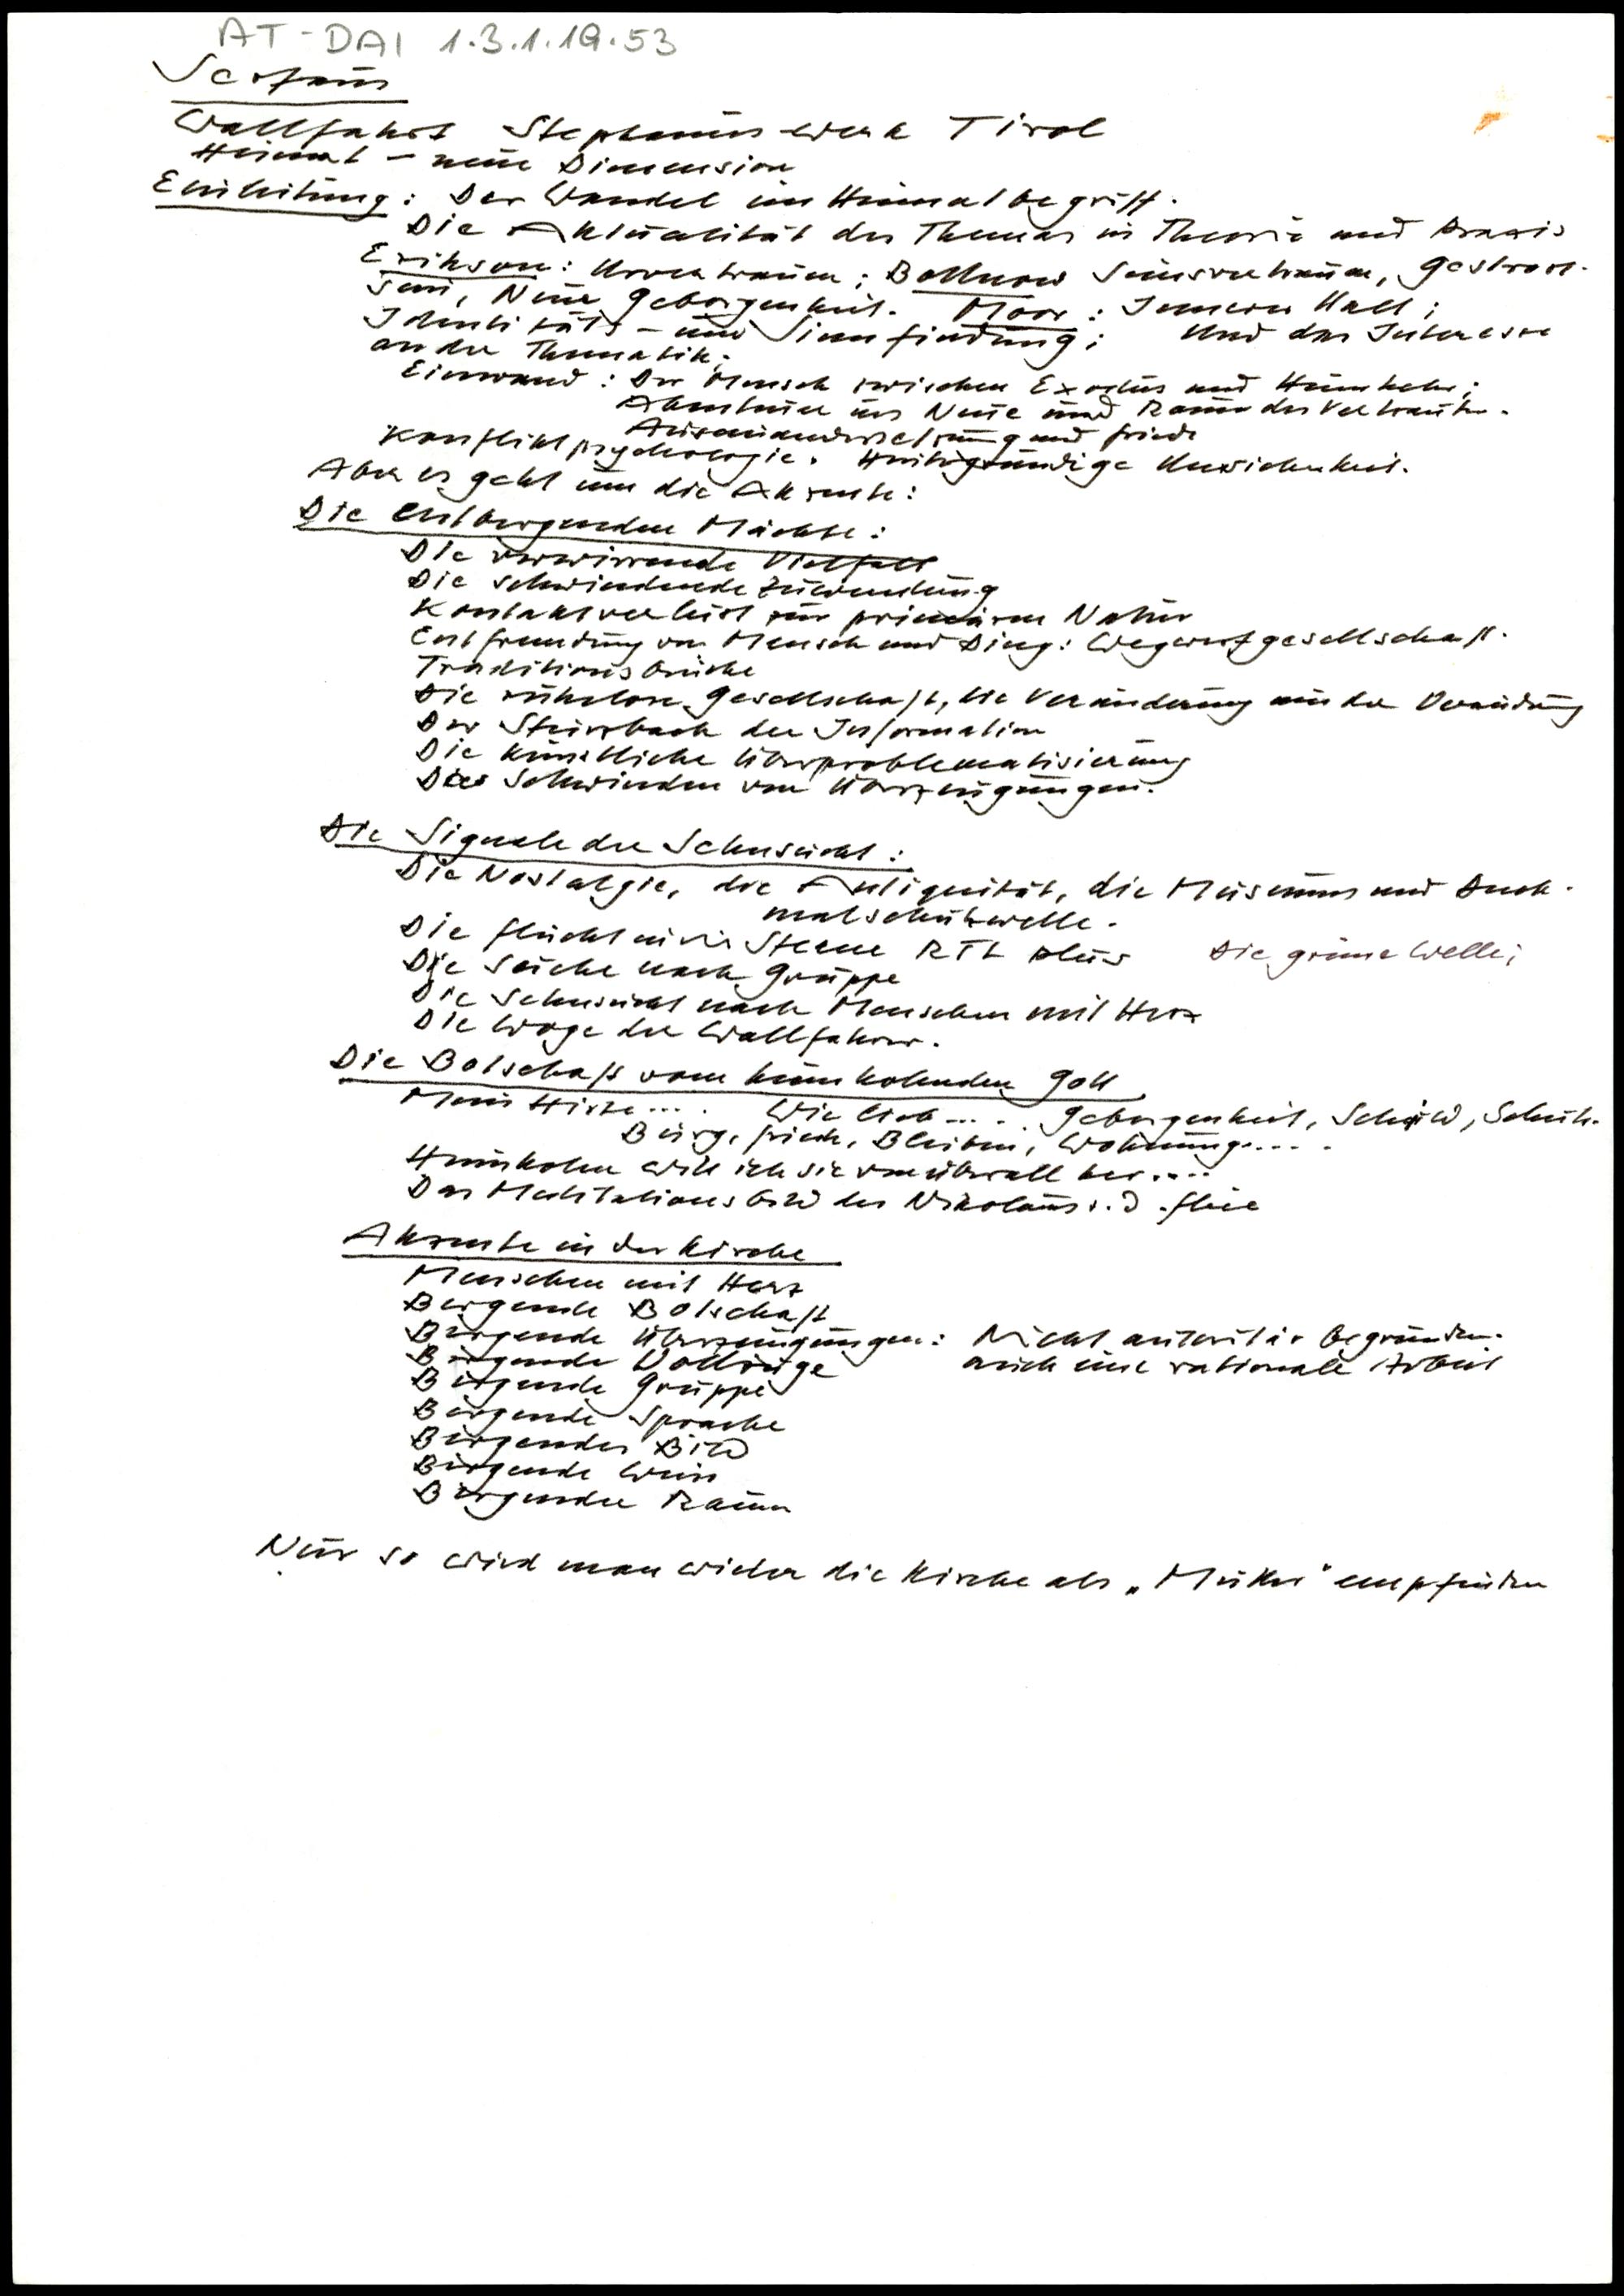 AT-DAI 1.3.1.19.53
Serfaus
Wallfahrt Stephanuswerk Tirol
Heimat - neue Dimension
Einleitung: Der Wandel im Heimatbegriff.
Die Aktualität des Themas in Theorie und Praxis
Erikson: Urvertrauen; Bollnow Seinsvertrauen, Getrost-
sein, Neue Geborgenheit. Moor: Innerer Halt;
Identitäts- und Sinnfindung; Und das Interesse
an der Thematik.
Einwand: Der Mensch zwischen Exodus und Heimkehr;
Abenteuer ins Neue und Raum des Vertrauten.
Auseinandersetzung und Friede
Konfliktpsychologie. Unsicherheit.
Aber es geht um die Akzente:
Die entbergenden Mächte:
Die verwirrende Vielfalt
Die schwindende Zuwendung
Kontaktverlust zur primären Natur
Entfremdung von Mensch und Ding: Wegwerfgesellschaft.
Traditionsbrüche
Die ruhelose Gesellschaft, die Veränderung um der Veränderung
Der Sturzbach der Information
Die künstliche Überproblematisierung
Das Schwinden von Überzeugungen.
Die Signale der Sehnsucht:
Die Nostalgie, die Antiquität, die Museums und Denk-
malschutzwelle.
Die Flucht in die Sterne RTL plus Die grüne Welle;
Die Suche nach Gruppe
Die Sehnsucht nach Menschen mit Herz
Die Woge der Wallfahrer.
Die Botschaft vom heimholenden Gott
Mein Hirte.... Wie lieb.... Geborgenheit, Schild, Schutz.
Burg, Friede, Bleiben, Wohnung....
Heimholen will ich sie von überall her....
Das Meditationsbild des Nikolaus v. d. Flüe
Akzente in der Kirche
Menschen mit Herz
Bergende Botschaft
Bergende Überzeugungen: Nicht autoritär begründen.
Bergende Vollzüge auch eine rationale Arbeit
Bergende Gruppe
Bergende Sprache
Bergendes Bild
Bergende Weise
Bergender Raum
Nur so wird man wieder die Kirche als „Mutter" empfinden